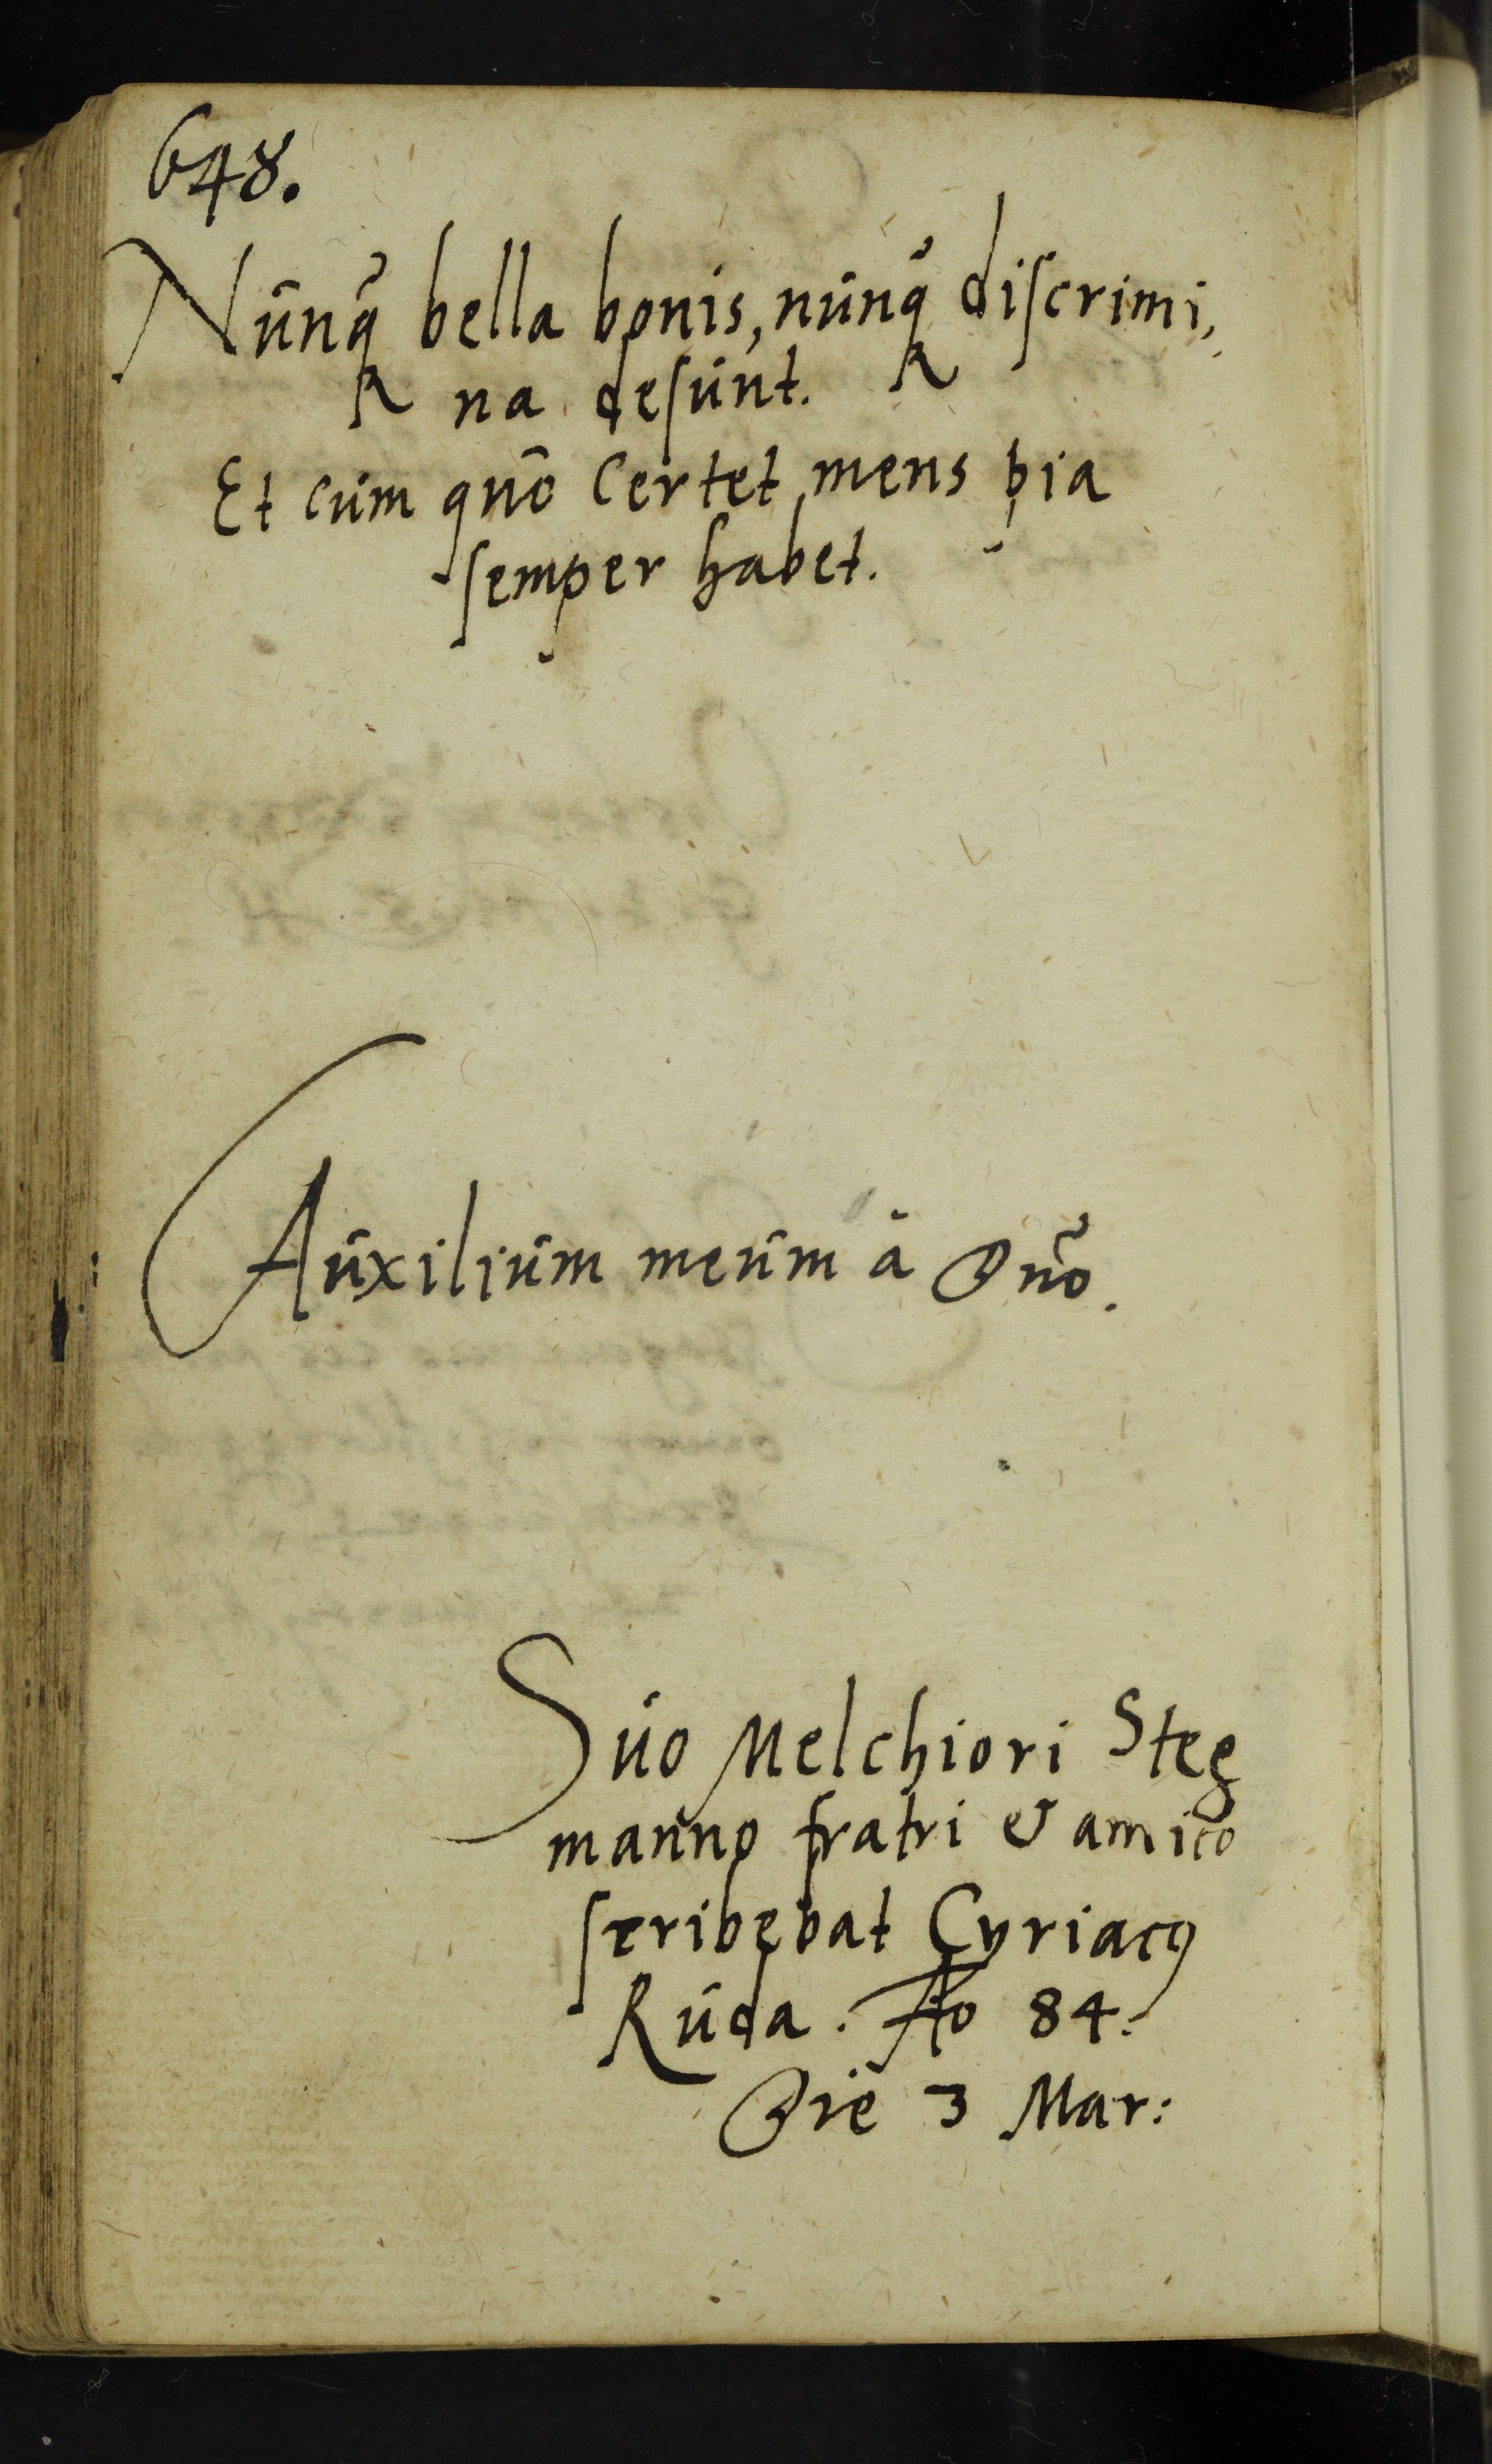 648.
Nunq̃ bella bonis, nunq̃ discrimi,
na desunt.
Et cum quo Certet mens pia
semper habet.
Auxilium meum à Dño.
Suo Melchiori Steg
manno fratri & amico
scribebat Cyriacꝯ
Ruda. Ao 84.
Die 3 Mar: